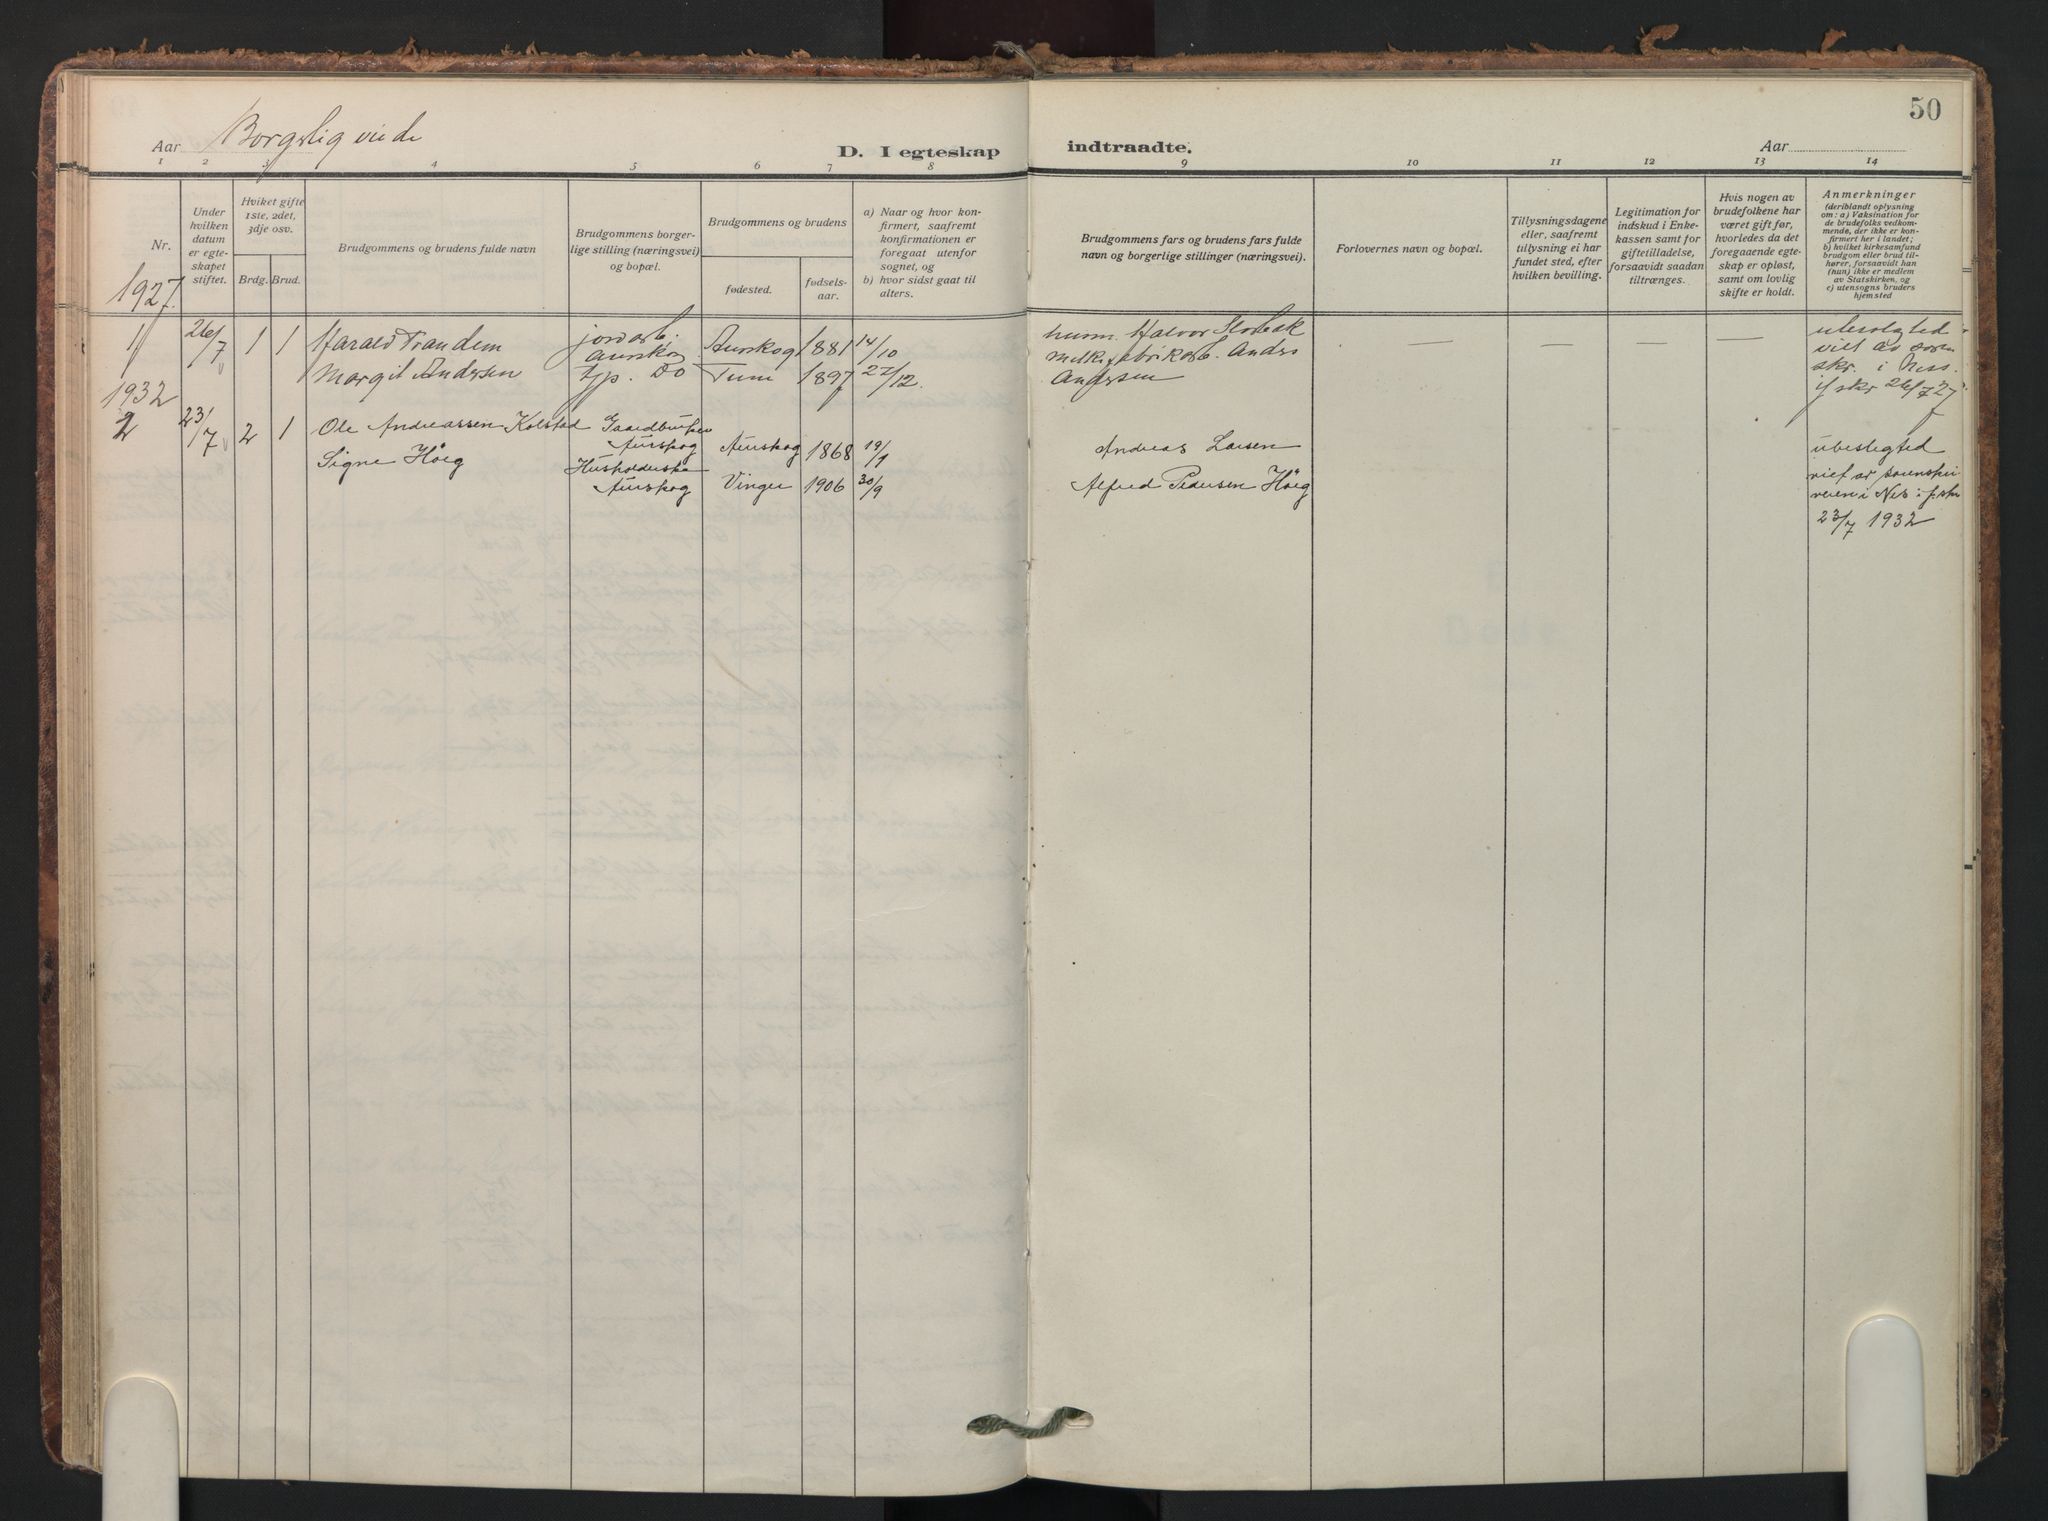 50
Aar Borgerlig viede
D. I egteskap indtraadte.
Aar
1 2 3 4 5 6 7 8 9 10 11 12 13 14
Nr.
Under
hvilken
datum
er egte-
skapet
stiftet.
Hviket gifte
1ste, 2det,
3dje osv.
Brdg. Brud.
Brudgommens og brudens fulde navn
Brudgommens borger-
lige stilling (næringsvei)
og bopæl.
Brudgommens og brudens
fødested.
fødsels-
aar.
a) Naar og hvor kon-
firmert, saafremt
konfirmationen er
foregaat utenfor
sognet, og
b) hvor sidst gaat til
alters.
Brudgommens fars og brudens fars fulde
navn og borgerlige stillinger (næringsvei).
Forlovernes navn og bopæl.
Tillysningsdagene
eller, saafremt
tillysning ei har
fundet sted, efter
hvilken bevilling.
Legitimation for
indskud i Enke-
kassen samt for
giftetilladelse,
forsaavidt saadan
tiltrænges.
Hvis nogen av
brudefolkene har
været gift før,
hvorledes da det
foregaaende egte-
skap er opløst,
samt om lovlig
skifte er holdt.
Anmerkninger
(deriblandt oplysning
om: a) Vaksination for
de brudefolks vedkom-
mende, der ikke er kon-
firmert her i landet;
b) hvilket kirkesamfund
brudgom eller brud til-
hører, forsaavidt han
(hun) ikke er medlem
av Statskirken, og
c) utensogns bruders
hjemsted
1927
1 26/7 1 1 Harald Trandem jordarb. Aurskog Aurskog 1881 14/10 husm. Halvor Storbak — — — — ubeslegted
Margit Andersen tjp. Do Tune 1897 27/12 melkefabrikarb. Anders
Andersen
viet av soren
skr. i Ness.
if skr 26/7 27
1932
2 23/7 2 1 Ole Andreassen Kolstad Gaardbruker
Aurskog Aurskog 1868 19/9 Andreas Larsen ubeslegted
Signe Høeg Husholderske
Aurskog Vinger 1906 30/9 Alfred Pedersen Höeg
viet av sorenskri
veren i Nes i f. skr
23/7 1932